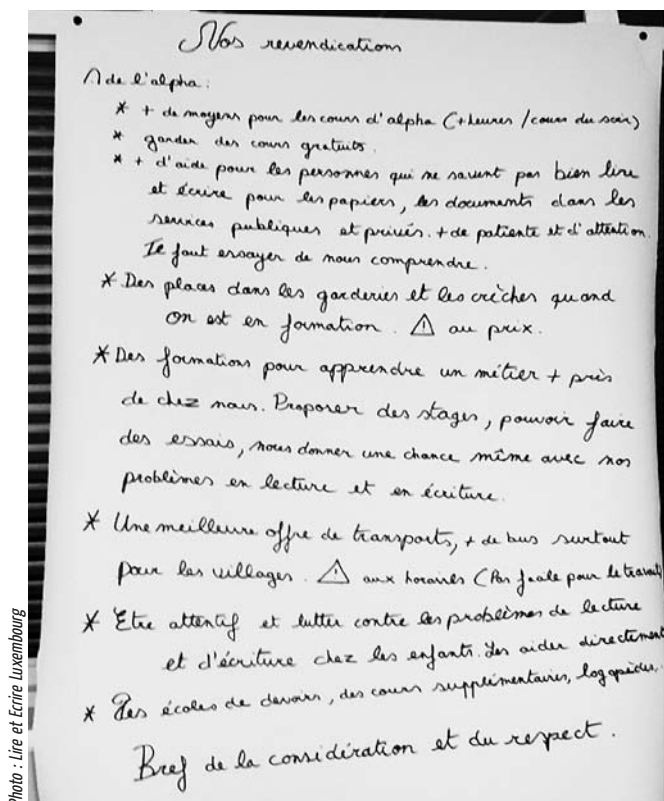 Nos revendications
de l'alpha :
* + de moyens pour les cours d'alpha (+ heures / cours du soir)
* garder des cours gratuits.
* + d'aide pour les personnes qui ne savent pas bien lire
et écrire pour les papiers, les documents dans les
services publiques et privés. + de patiente et d'attention.
Il faut essayer de nous comprendre.
* Des places dans les garderies et les crèches quand
on est en formation. ⚠ au prix.
* Des formations pour apprendre un métier + près
de chez nous. Proposer des stages, pouvoir faire
des essais, nous donner une chance même avec nos
problèmes en lecture et en écriture.
* Une meilleure offre de transports, + de bus surtout
pour les villages. ⚠ aux horaires (Pas facile pour le travail)
* Etre attentif et lutter contre les problèmes de lecture
et d'écriture chez les enfants. Les aider directement
* Des écoles de devoirs, des cours supplémentaires, logopèdes..
Bref de la considération et du respect.
Photo : Lire et Ecrire Luxembourg